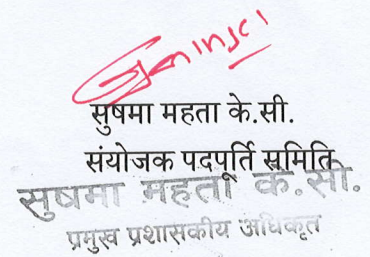 सुषमा महता के.सी.
संयोजक पदपूर्ति समिति
सुषमा महता के.सी.
प्रमुख प्रशासकीय अधिकृत